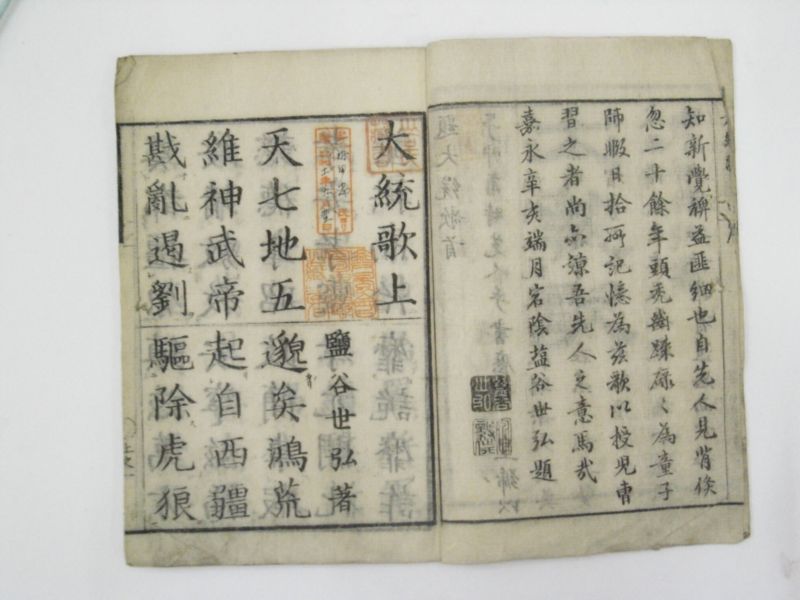 知新覺裨益匪細也自先人見背倏
忽二十餘年頭禿齒疎碌々為童子
師暇日拾所記憶為茲歌以授兒曹
習之者尚亦諒吾先人之意焉哉
嘉永辛亥端月宕陰塩谷世弘題
大統歌上
鹽谷世弘著
天七地五 邈矣鴻荒
維神武帝 起自西疆
戡亂遏劉 驅除虎狼